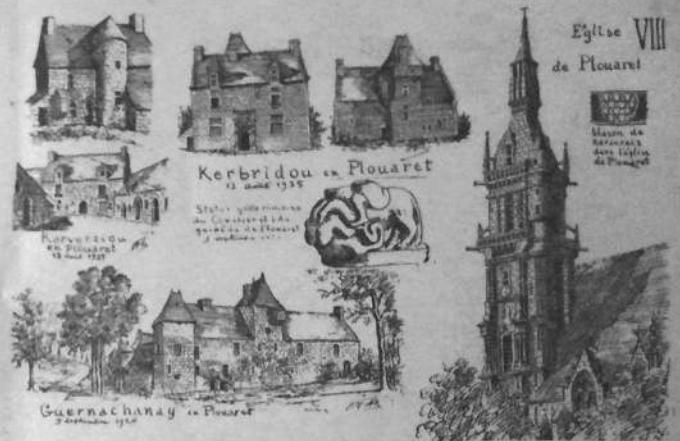 Eglise VIII
de Plouaret
Blason de
dans l'église
de Plouaret
Kerbridou en Plouaret
13 août 1935
Statue gallo-romaine
du Cavalier et du
de Plouaret
en Plouaret
13 août
Guernachanay en Plouaret
septembre